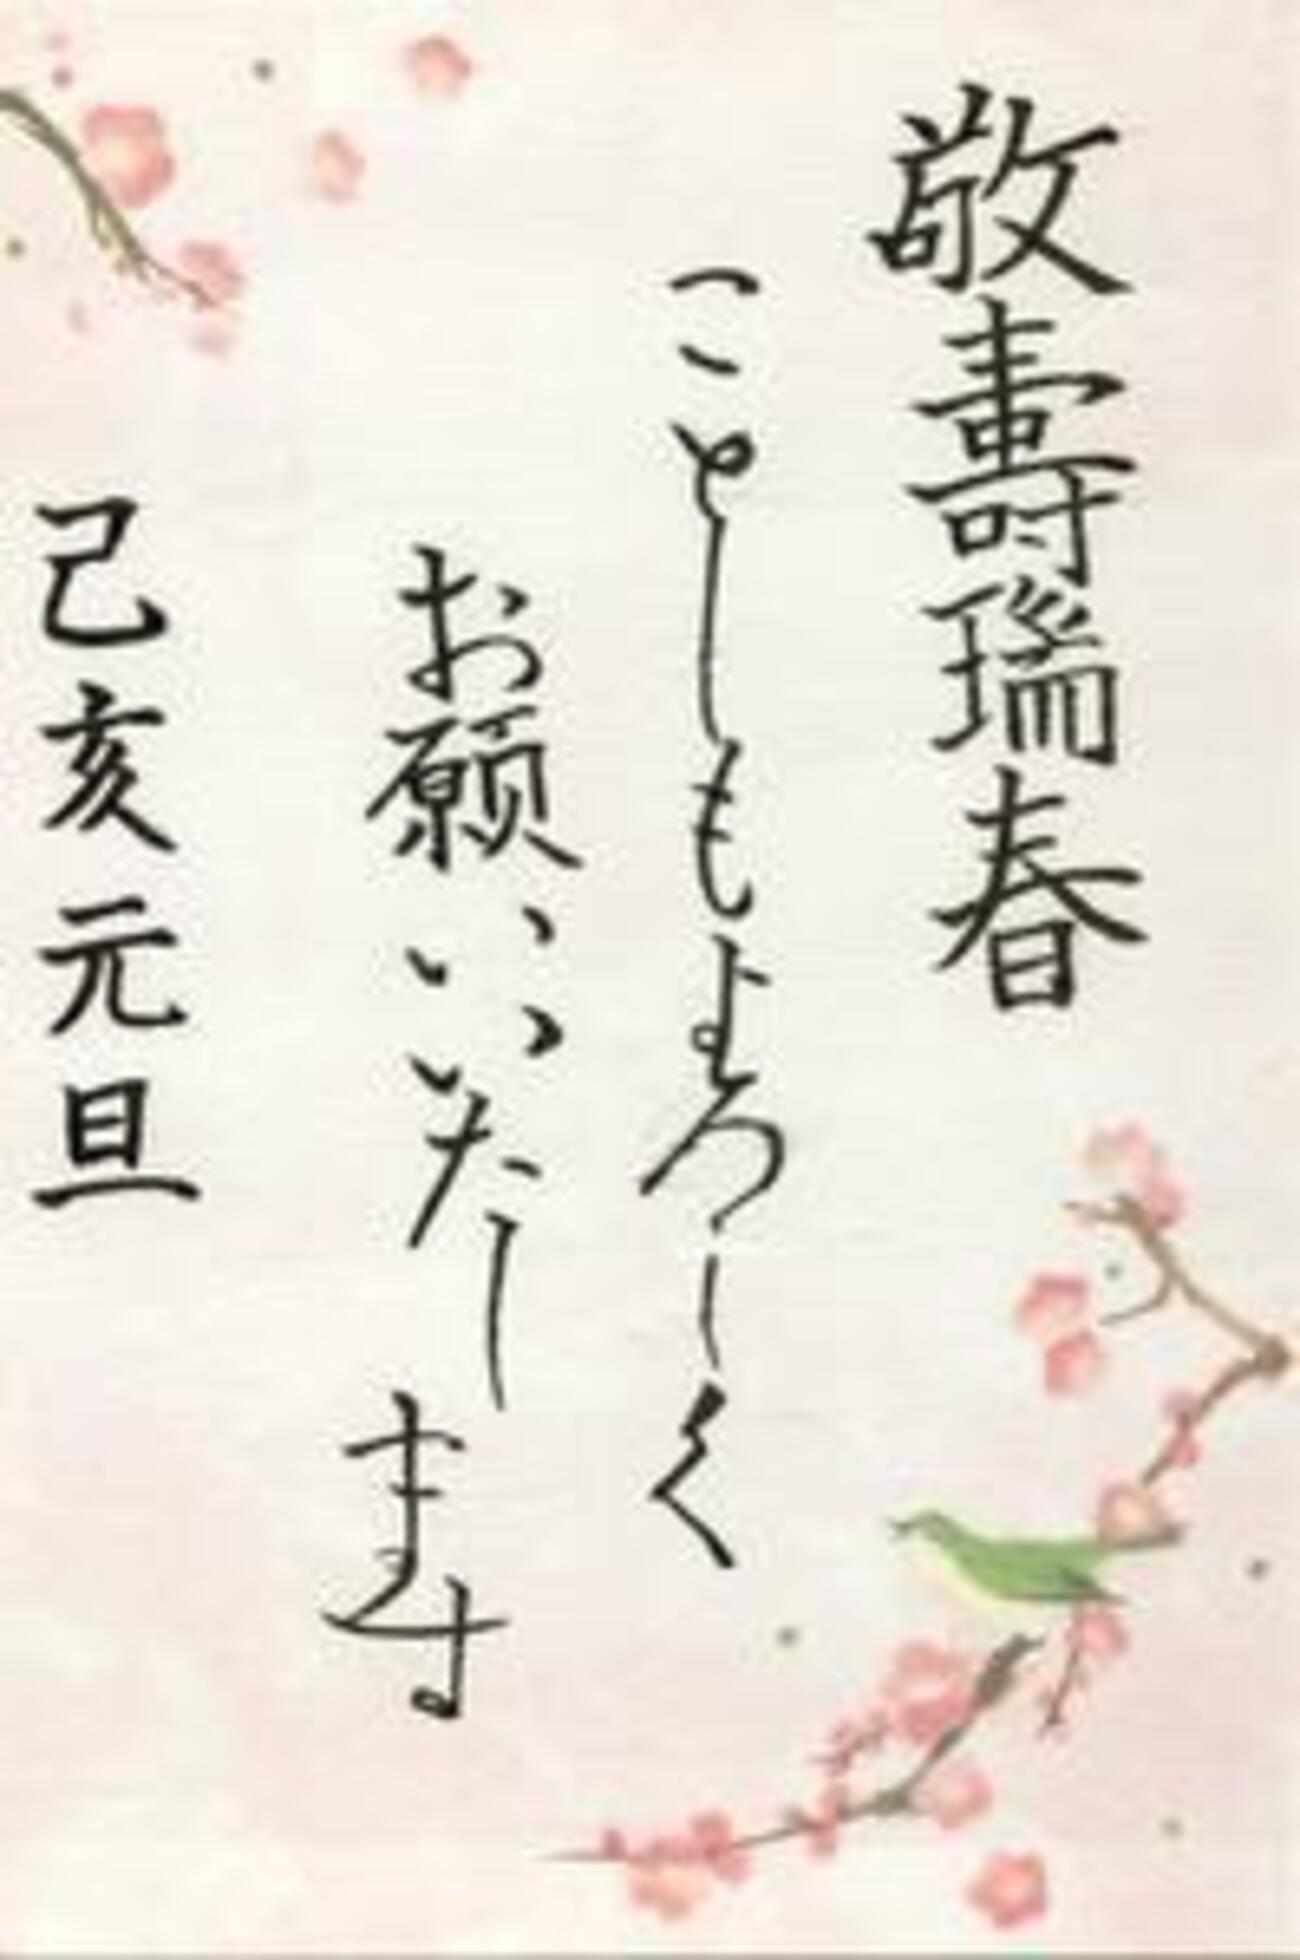 敬壽瑞春
ことしもよろしく
お願いいたします
己亥元旦